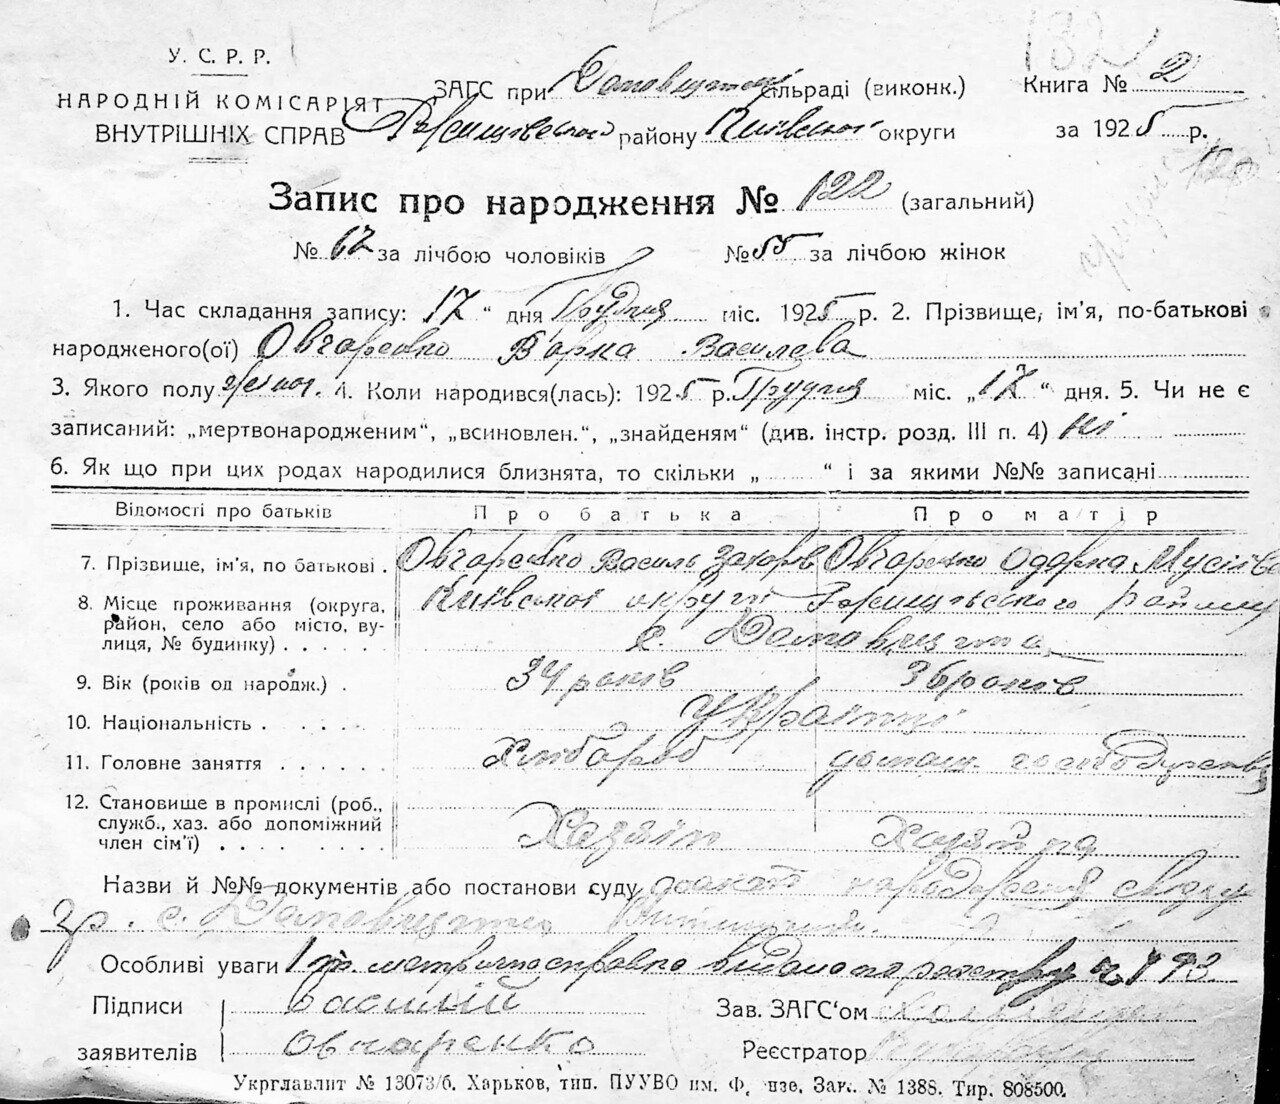 У. С. Р. Р.
НАРОДНІЙ КОМІСАРІЯТ
ВНУТРІШНІХ СПРАВ
ЗАГС при сільраді (виконк.) Книга № 2
району Київської округи за 1925 р.
Запис про народження № 122 (загальний)
№ 67 за лічбою чоловіків № 55 за лічбою жінок
1. Час складання запису: 17 “ дня Грудня міс. 1925 р. 2. Прізвище, ім'я, по-батькові
народженого(ої) Овчаренко Варка Василева
3. Якого полу жіноч. 4. Коли народився(лась): 1925 р. Грудня міс. „17“ дня. 5. Чи не є
записаний: „мертвонародженим“, „всиновлен.“, „знайденям“ (див. інстр. розд. III п. 4) ні
6. Як що при цих родах народилися близнята, то скільки „ “ і за якими №№ записані
Відомості про батьків Про батька Про матір
7. Прізвище, ім'я, по батькові . Овчаренко Василь Захаров Овчаренко Одарка Мусіїва
8. Місце проживання (округа, Київської округи району
район, село або місто, ву-
лиця, № будинку) . . . . . с.
9. Вік (років од народж.) . 34 років 36 років
10. Національність . . . . . Українці
11. Головне заняття . . . . . . Хлібороб домаш. господарство
12. Становище в промислі (роб.,
служб., хаз. або допоміжний
член сім'ї) . . . . . . . . Хазяїн Хазяйка
Назви й №№ документів або постанови суду народження
с.
Особливі уваги видана по реєстру
Підписи Василій Зав. ЗАГС'ом
заявителів Овчаренко Реєстратор
Укрглавлит № 13073/б. Харьков, тип. ПУУВО им. Ф нзе. Зак. № 1388. Тир. 808500.